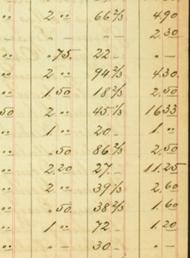 " 2 " 66 2/3 4.90
" . — . — 2.30
" .75. 22 — . —
" 2 " 94 2/3 4.30
" 1.50 18 2/3 2.50
50 2 " 45 1/3 16 33
" 1 " 20 — 1 "
" .50 86 2/3 2.50
" 2.20 27. — 11.25
" 2 " 39 1/3 2.60
" .50. 38 2/3 1.60
" 1 " 72 1.20
" . — 30 — . —